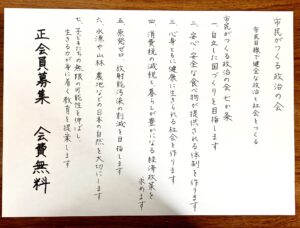 市民がつくる政治の会
市民目線で健全な政治と社会をつくる
市民がつくる政治の会 七か条
一、自立した国づくりを目指します
二、安心・安全な食べ物が提供される体制を作ります
三、心身ともに健康に生きられる社会を作ります
四、消費税の減税、暮らしが豊かになる経済政策を
求めます
五、原発ゼロ 放射能汚染の削減を目指します
六、水源や山林、農地などの日本の自然を大切にします
七、子どもたちの無限の可能性を伸ばし、
生きる力が身に付く教育を提案します
正会員募集 会費無料